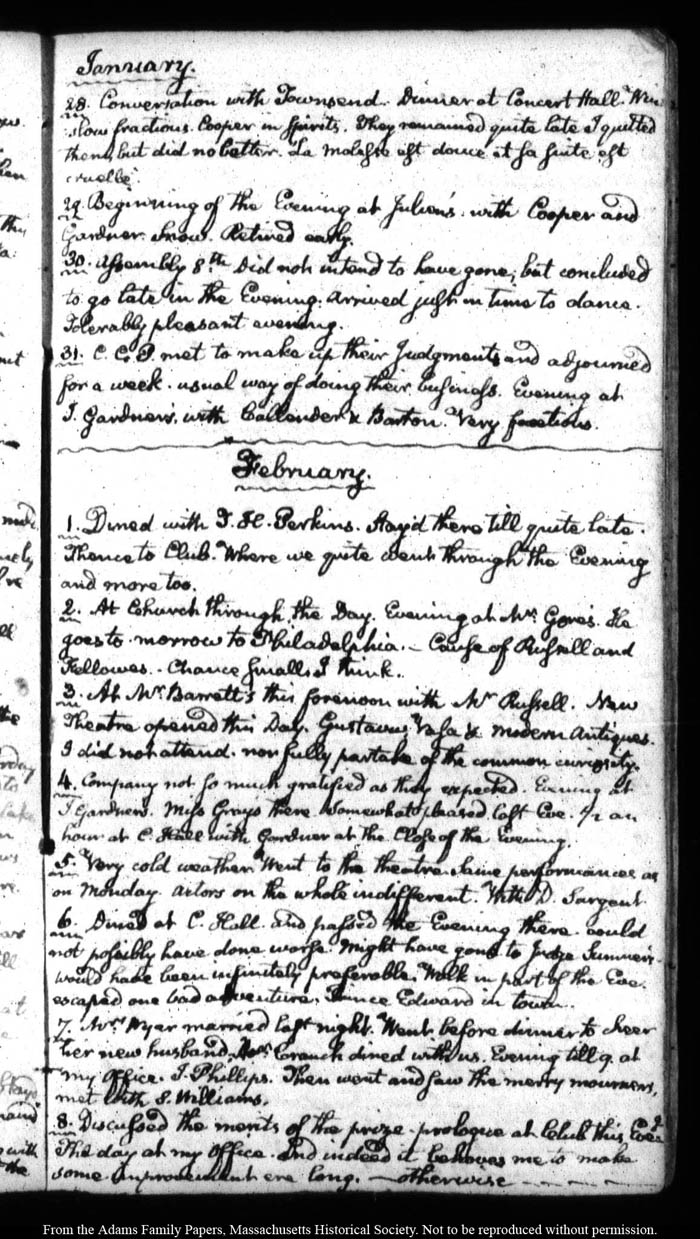 January.
28. Conversation with Townsend. Dinner at Concert Hall.
slow fractious. Cooper in spirits. They remained quite late I quitted
them, but did no better. La molesse est douce et sa suite est
cruelle.
29. Beginning of the Evening at Julien's. with Cooper and
Gardner. Snow. Retired early.
30. Assembly 8.th Did not intend to have gone, but concluded
to go late in the Evening. arrived just in time to dance.
Tolerably pleasant evening.
31. C. C. P. met to make up their Judgments and adjourned
for a week. usual way of doing their business. Evening at
J. Gardner's. with Callender & Barton. Very factious.
February.
1. Dined with T. H. Perkins. Stay'd there till quite late.
Thence to Club. Where we quite went through the Evening
and more too.
2. At Church through the Day. Evening at Mr. Gore's. He
goes to-morrow to Philadelphia. – Cause of Russell and
Fellowes. – Chance small, I think.
3. At Mr. Barrett's this forenoon with Mr Russell. New
Theatre opened this Day. Gustavus Vasa & modern Antiques.
I did not attend. nor fully partake of the common curiosity.
4. Company not so much gratified as they expected. Evening at
J Gardners. Miss Grays there. Somewhat pleased last Eve. 1/2 an
hour at C. Hall with Gardner at the Close of the Evening.
5. Very cold weather. Went to the theatre. Same performances as
on Monday. Actors on the whole indifferent. With D. Sargent
6. Dined at C. Hall. and passed the Evening there. could
not possibly have done worse. Might have gone to Judge Sumner's.
would have been infinitely preferable. Walk in part of the Eve.
escaped one bad adventure. Prince Edward in town.
7. Mrs. Wyer married last night. Went before dinner to cheer
her new husband. Cranch dined with us. Evening till 9. at
my Office. J. Phillips. Then went and saw the merry mourners,
met with S. Williams.
8. Discussed the merits of the prize-prologue at Club this Eveg
The day at my Office. And indeed it behoves me to make
some improvement ere long. – otherwise – – – –
From the Adams Family Papers, Massachusetts Historical Society. Not to be reproduced without permission.